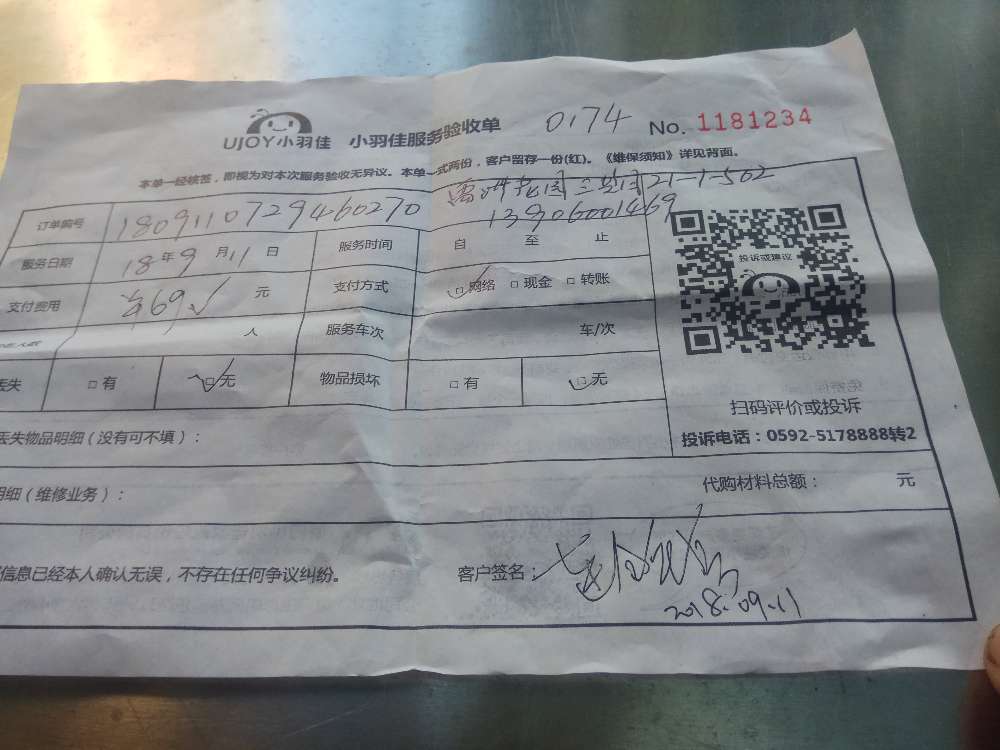 UJOY小羽佳 小羽佳服务验收单 0174 No. 1181234
本单一经核签，即视为对本次服务验收无异议。本单一式两份，客户留存一份(红)。《维保须知》详见背面。
21-1-502
订单编号 1809110729460270 13906001469
服务日期 18年9月11日 服务时间 自 至 止
支付费用 ¥69 元 支付方式 □网络 □现金 □转账
投诉或建议
人 服务车次 车/次
丢失 □有 □无 物品损坏 □有 □无
扫码评价或投诉
丢失物品明细（没有可不填）： 投诉电话：0592-5178888转2
明细（维修业务）： 代购材料总额： 元
信息已经本人确认无误，不存在任何争议纠纷。 客户签名：
2018.09.11